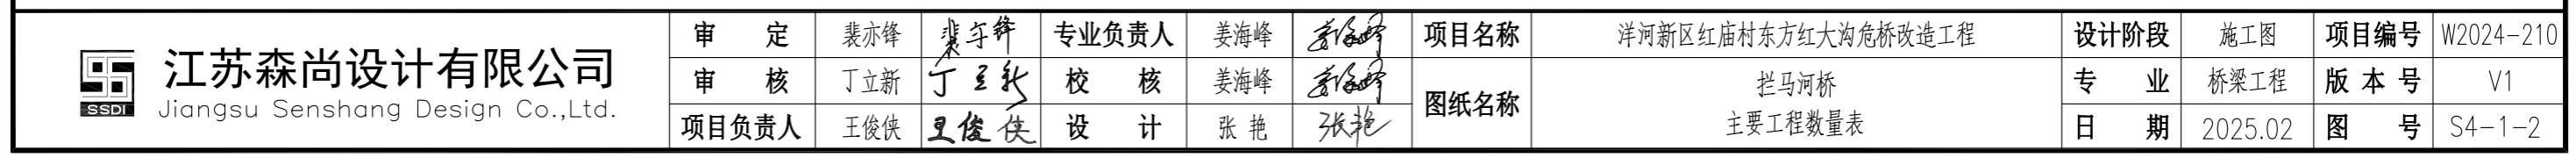 SSDI
江苏森尚设计有限公司
Jiangsu Senshang Design Co.,Ltd.
审 定 裴亦锋 裴亦锋 专业负责人 姜海峰 姜海峰 项目名称 洋河新区红庙村东方红大沟危桥改造工程 设计阶段 施工图 项目编号 W2024-210
审 核 丁立新 丁立新 校 核 姜海峰 姜海峰 图纸名称 拦马河桥 专 业 桥梁工程 版本号 V1
项目负责人 王俊侠 王俊侠 设 计 张 艳 张艳 主要工程数量表 日 期 2025.02 图 号 S4-1-2